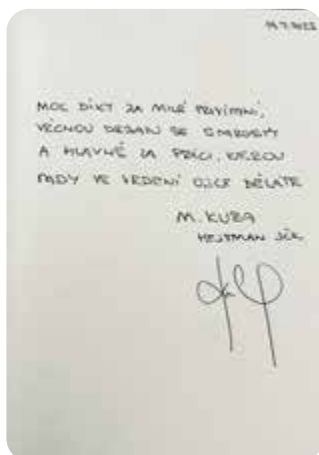 14.7.2022
MOC DÍKY ZA MILÉ PŘIVÍTÁNÍ,
VĚCNOU DEBATU SE STAROSTY
A HLAVNĚ ZA PRÁCI, KTEROU
TADY VE VEDENÍ OBCE DĚLÁTE
M. KUBA
HEJTMAN JČK